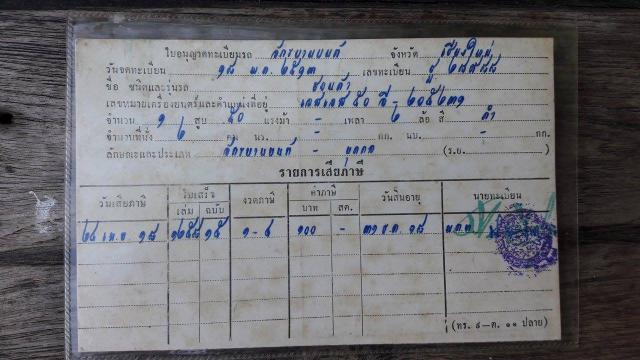 ใบอนุญาตทะเบียนรถ จักรยานยนต์ จังหวัด เชียงใหม่
วันจดทะเบียน ๑๘ พ.ค. ๒๕๑๓ เลขทะเบียน
ชื่อ ชนิดและรุ่นรถ ฮอนด้า
เลขหมายเครื่องยนต์และตำแหน่งที่อยู่
จำนวน ๑ สูบ ๕๐ แรงม้า - เพลา ๒ ล้อ สี ดำ
จำนวนที่นั่ง ๒ คน นร. - กก. นบ. - กก.
ลักษณะและประเภท จักรยานยนต์ - (ร.ย. )
รายการเสียภาษี
วันเสียภาษี ใบเสร็จ งวดภาษี ค่าภาษี วันสิ้นอายุ นายทะเบียน
เล่ม ฉบับ บาท สต.
๒๔ เม.ย. ๑๘ ๑๕ ๑-๔ ๑๐๐ - ๓๑ ธ.ค. ๑๘
(ทร. ๙—ต. ๑๑ ปลาย)